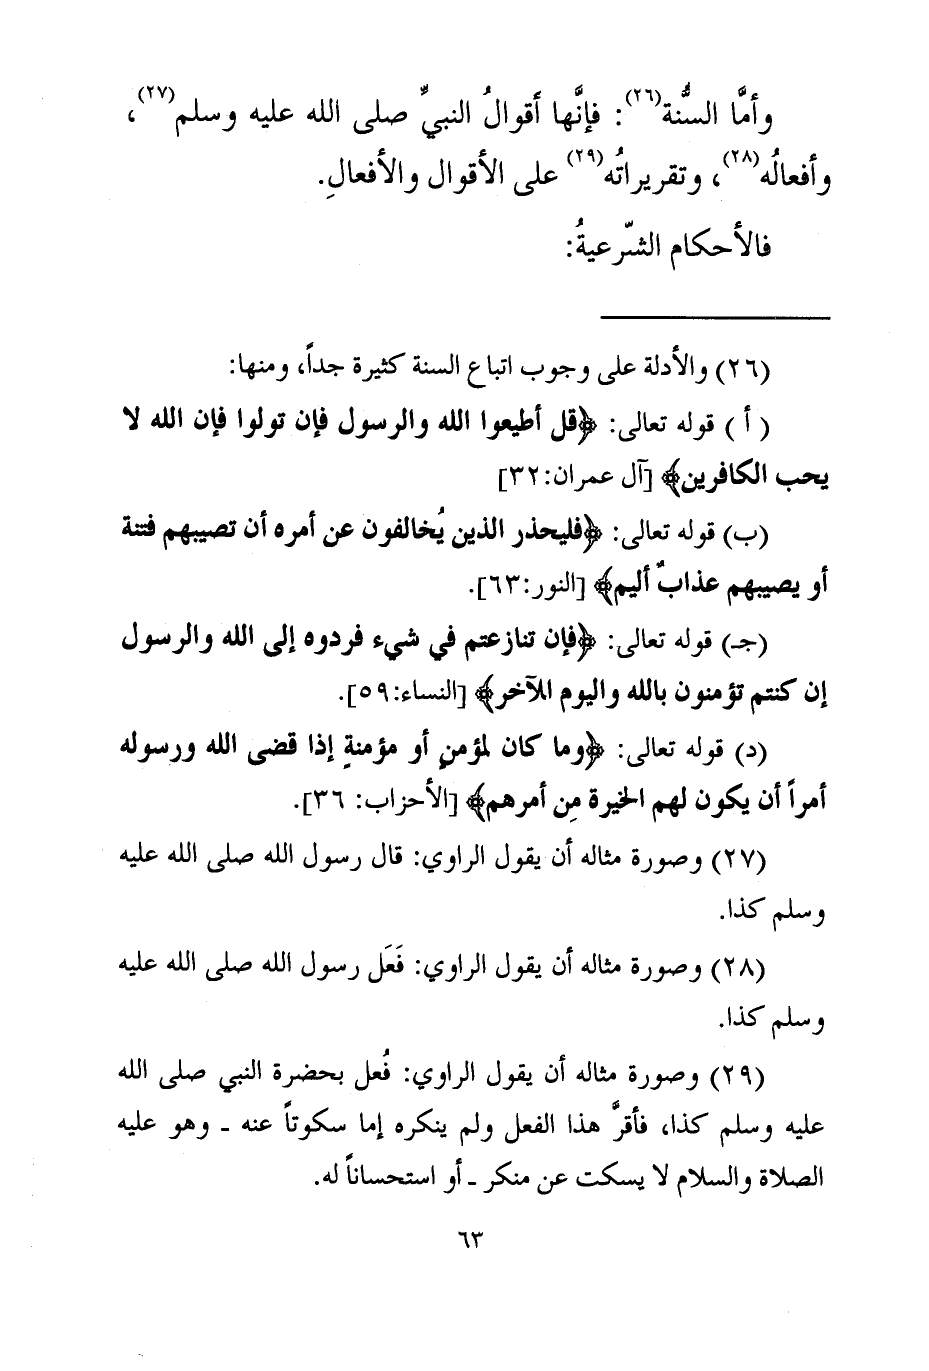 وأمَّا السُّنة(٢٦): فإنَّها أقوالُ النبيِّ صلى الله عليه وسلم(٢٧)،
وأفعالُه(٢٨)، وتقريراتُه(٢٩) على الأقوال والأفعالِ.
فالأحكام الشّرعيةُ:
(٢٦) والأدلة على وجوب اتباع السنة كثيرة جداً، ومنها:
( أ ) قوله تعالى: ﴿قل أطيعوا الله والرسول فإن تولوا فإن الله لا
يحب الكافرين﴾ [آل عمران:٣٢]
(ب) قوله تعالى: ﴿فليحذر الذين يُخالفون عن أمره أن تصيبهم فتنة
أو يصيبهم عذابٌ أليم﴾ [النور:٦٣].
(جـ) قوله تعالى: ﴿فإن تنازعتم في شيء فردوه إلى الله والرسول
إن كنتم تؤمنون بالله واليوم الآخر﴾ [النساء:٥٩].
(د) قوله تعالى: ﴿وما كان لمؤمنٍ أو مؤمنةٍ إذا قضى الله ورسوله
أمراً أن يكون لهم الخيرة مِن أمرهم﴾ [الأحزاب: ٣٦].
(٢٧) وصورة مثاله أن يقول الراوي: قال رسول الله صلى الله عليه
وسلم كذا.
(٢٨) وصورة مثاله أن يقول الراوي: فَعَل رسول الله صلى الله عليه
وسلم كذا.
(٢٩) وصورة مثاله أن يقول الراوي: فُعل بحضرة النبي صلى الله
عليه وسلم كذا، فأقرَّ هذا الفعل ولم ينكره إما سكوتاً عنه ـ وهو عليه
الصلاة والسلام لا يسكت عن منكر ـ أو استحساناً له.
٦٣